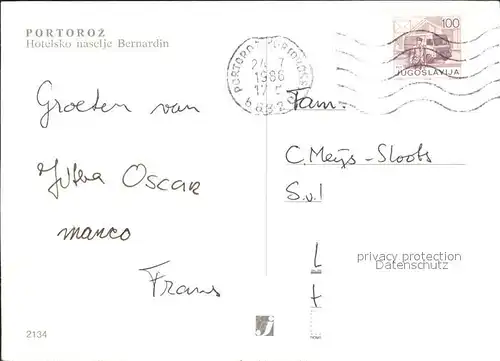 PORTOROŽ
Hotelsko naselje Bernardin
PORTOROŽ PORTOROSE
24 7
1986
17
6 6 3 2 0
100
JUGOSLAVIJA
Groeten van
Oscar
marco
Frans
Fam.
C. Meijs-Sloots
S.v.l
L
privacy protection
Datenschutz
2134